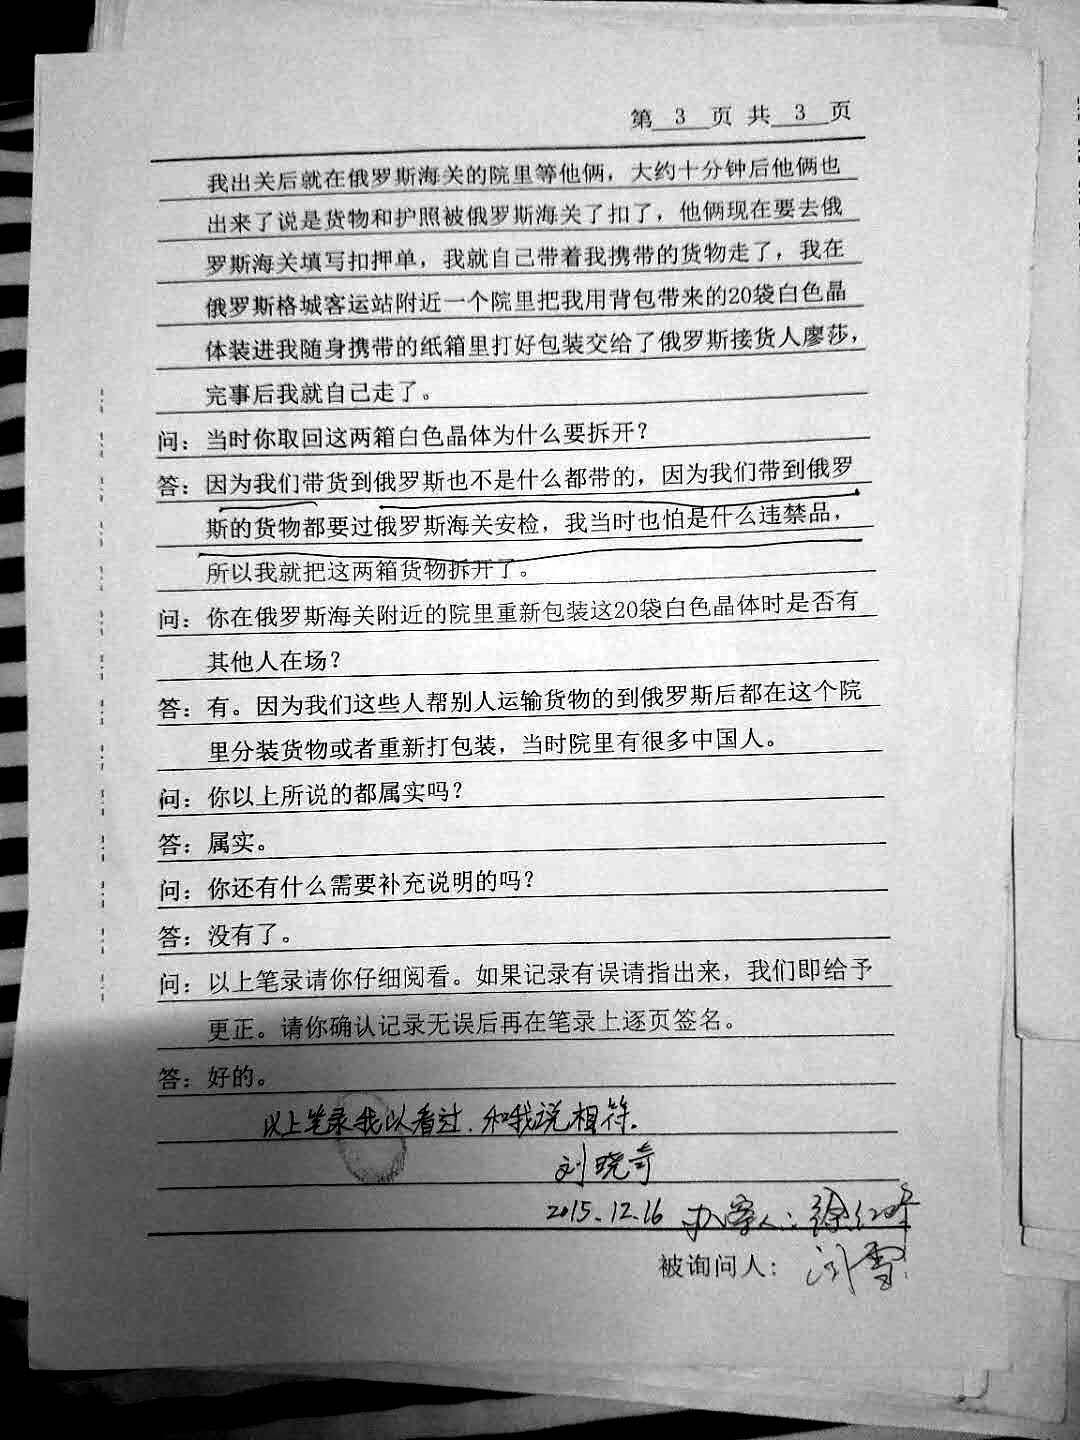 第 3 页 共 3 页
我出关后就在俄罗斯海关的院里等他俩，大约十分钟后他俩也
出来了说是货物和护照被俄罗斯海关了扣了，他俩现在要去俄
罗斯海关填写扣押单，我就自己带着我携带的货物走了，我在
俄罗斯格城客运站附近一个院里把我用背包带来的20袋白色晶
体装进我随身携带的纸箱里打好包装交给了俄罗斯接货人廖莎，
完事后我就自己走了。
问：当时你取回这两箱白色晶体为什么要拆开？
答：因为我们带货到俄罗斯也不是什么都带的，因为我们带到俄罗
斯的货物都要过俄罗斯海关安检，我当时也怕是什么违禁品，
所以我就把这两箱货物拆开了。
问：你在俄罗斯海关附近的院里重新包装这20袋白色晶体时是否有
其他人在场？
答：有。因为我们这些人帮别人运输货物的到俄罗斯后都在这个院
里分装货物或者重新打包装，当时院里有很多中国人。
问：你以上所说的都属实吗？
答：属实。
问：你还有什么需要补充说明的吗？
答：没有了。
问：以上笔录请你仔细阅看。如果记录有误请指出来，我们即给予
更正。请你确认记录无误后再在笔录上逐页签名。
答：好的。
以上笔录我以看过.和我说相符.
刘晓奇
2015.12.16 办案人：徐红
被询问人：